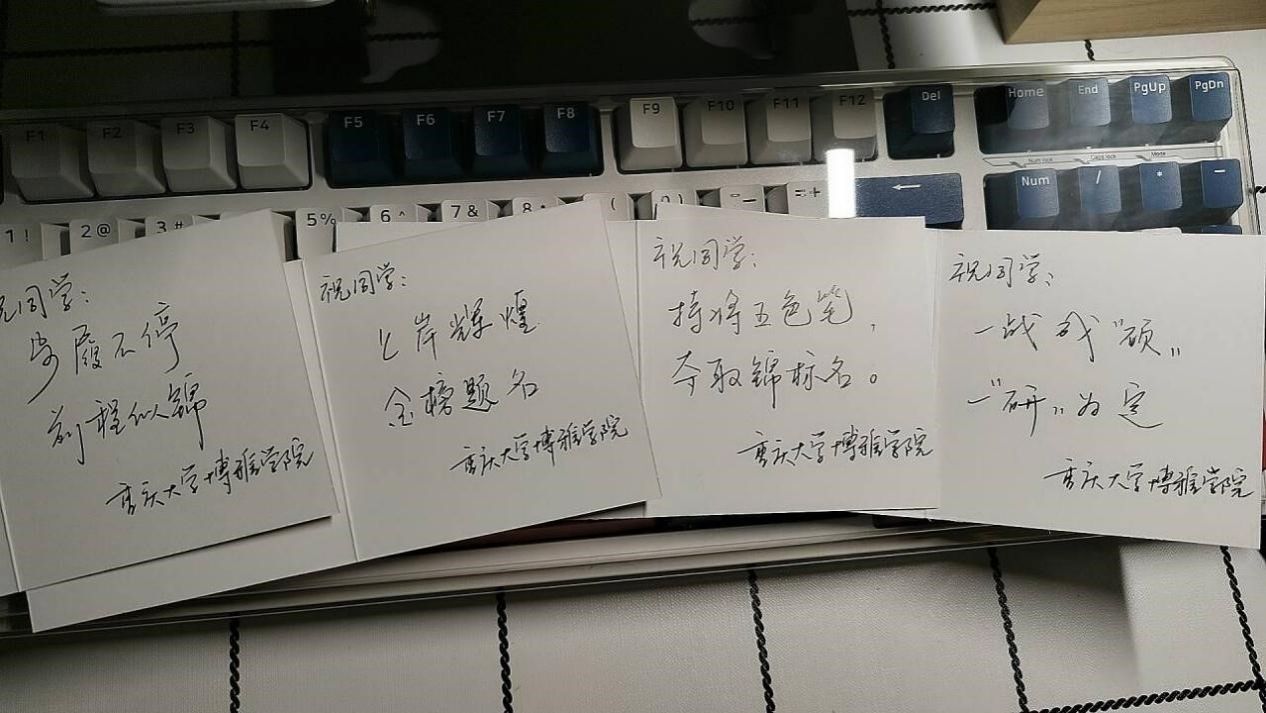 F1 F2 F3 F4 F5 F6 F7 F8 F9 F10 F11 F12 Del Home End PgUp PgDn
Num lock Caps lock Mode
Num / * -
1 ! 2 @ 3 # 5 % 6 ^ 7 & 8 ( 0 ) - = + ←
祝同学：
步履不停
前程似锦
重庆大学博雅学院
祝同学：
上岸辉煌
金榜题名
重庆大学博雅学院
祝同学：
持将五色笔，
夺取锦标名。
重庆大学博雅学院
祝同学：
一战成“硕”
一“研”为定
重庆大学博雅学院